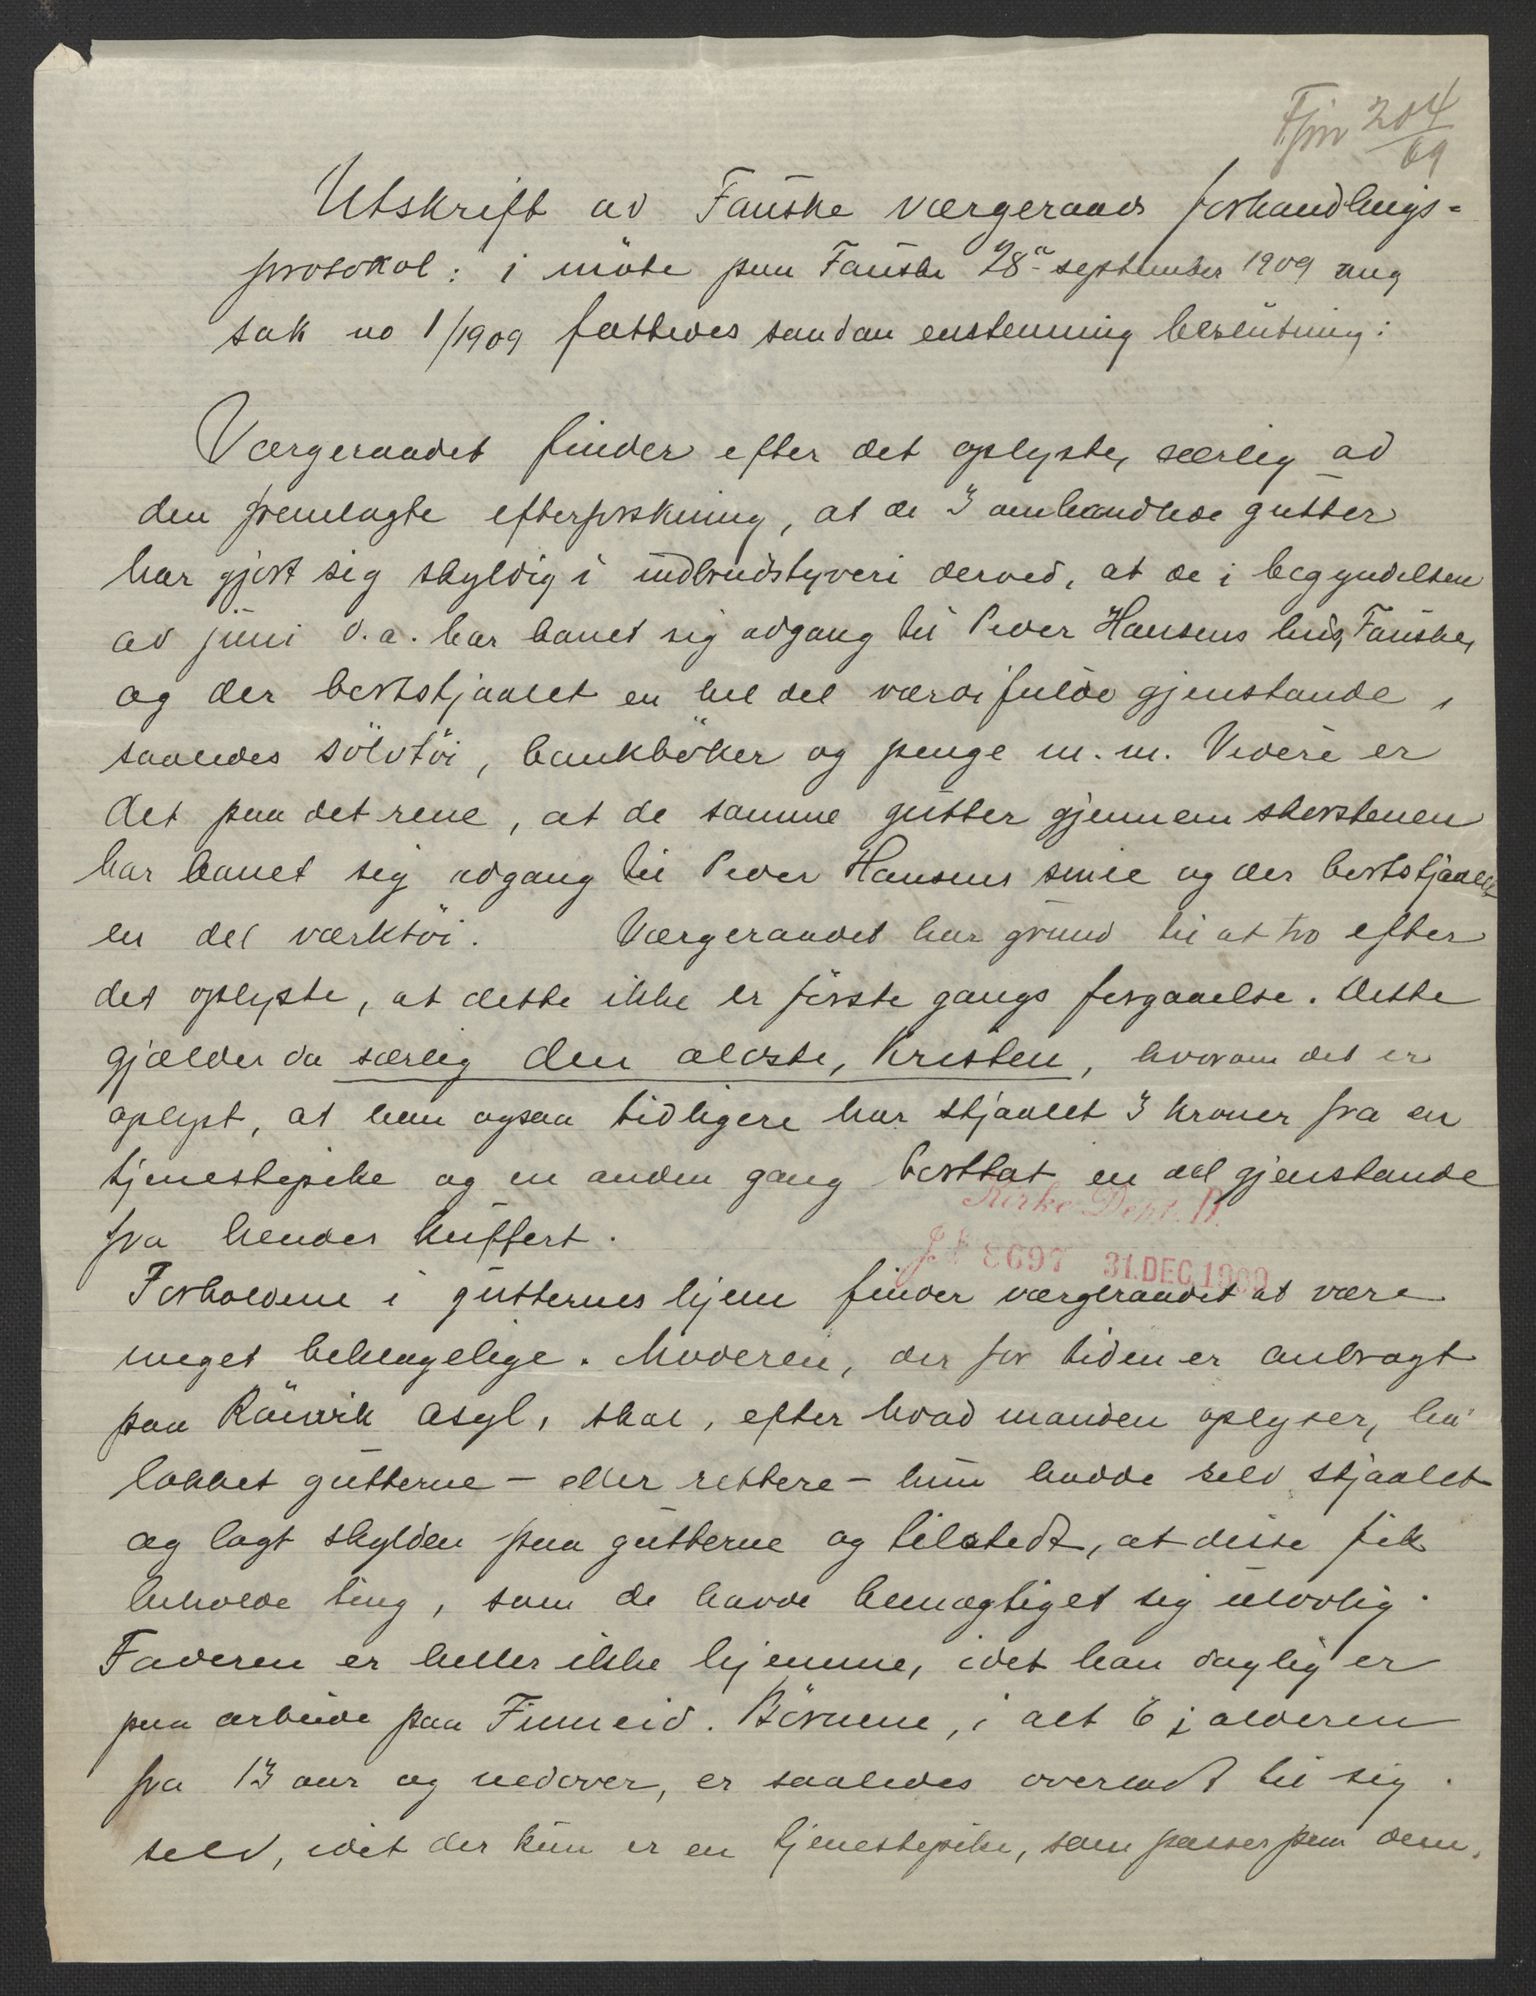 204
09
Utskrift av Fauske værgeraads forhandlings-
protokol: i møte paa Fauske 28de september 1909 ang
sak no 1/1909 fattedes saadan enstemmig beslutning:
Værgeraadet finder efter det oplyste, særlig av
den fremlagte efterforskning, at de 3 omhandlede gutter
har gjort sig skyldig i indbrudstyveri derved, at de i begyndelsen
av juni d.a. har banet sig adgang til Peder Hansens hus, Fauske,
og der bortstjaalet en hel del værdifulde gjenstande,
saaledes sölvtöi, bankböker og penge m.m. Videre er
det paa det rene, at de samme gutter gjennem skorstenen
har banet sig adgang til Peder Hansens smie og der bortstjaalet
en del værktöi. Værgeraadet har grund til at tro efter
det oplyste, at dette ikke er förste gangs forgaaelse. Dette
gjælder da særlig den ældste, Kristen, hvorom det er
oplyst, at han ogsaa tidligere har stjaalet 3 kroner fra en
tjenestepike og en anden gang borttat en del gjenstande
fra hendes kuffert.
Kirke-Dept. B.
J. № 3697 31. DEC. 1909
Forholdene i gutternes hjem finder værgeraadet at være
meget beklagelige. Moderen, der for tiden er anbragt
paa Rönvik asyl, skal, efter hvad manden oplyser, ha
lokket gutterne – eller rettere – hun hadde selv stjaalet
og lagt skylden paa gutterne og tilstedt, at disse fik
beholde ting, som de havde bemægtiget sig ulovlig.
Faderen er heller ikke hjemme, idet han daglig er
paa arbeide paa Finneid. Börnene, i alt 6 i alderen
fra 13 aar og nedover, er saaledes overladt til sig
selv, idet der kun er en tjenestepike, som passer paa dem.